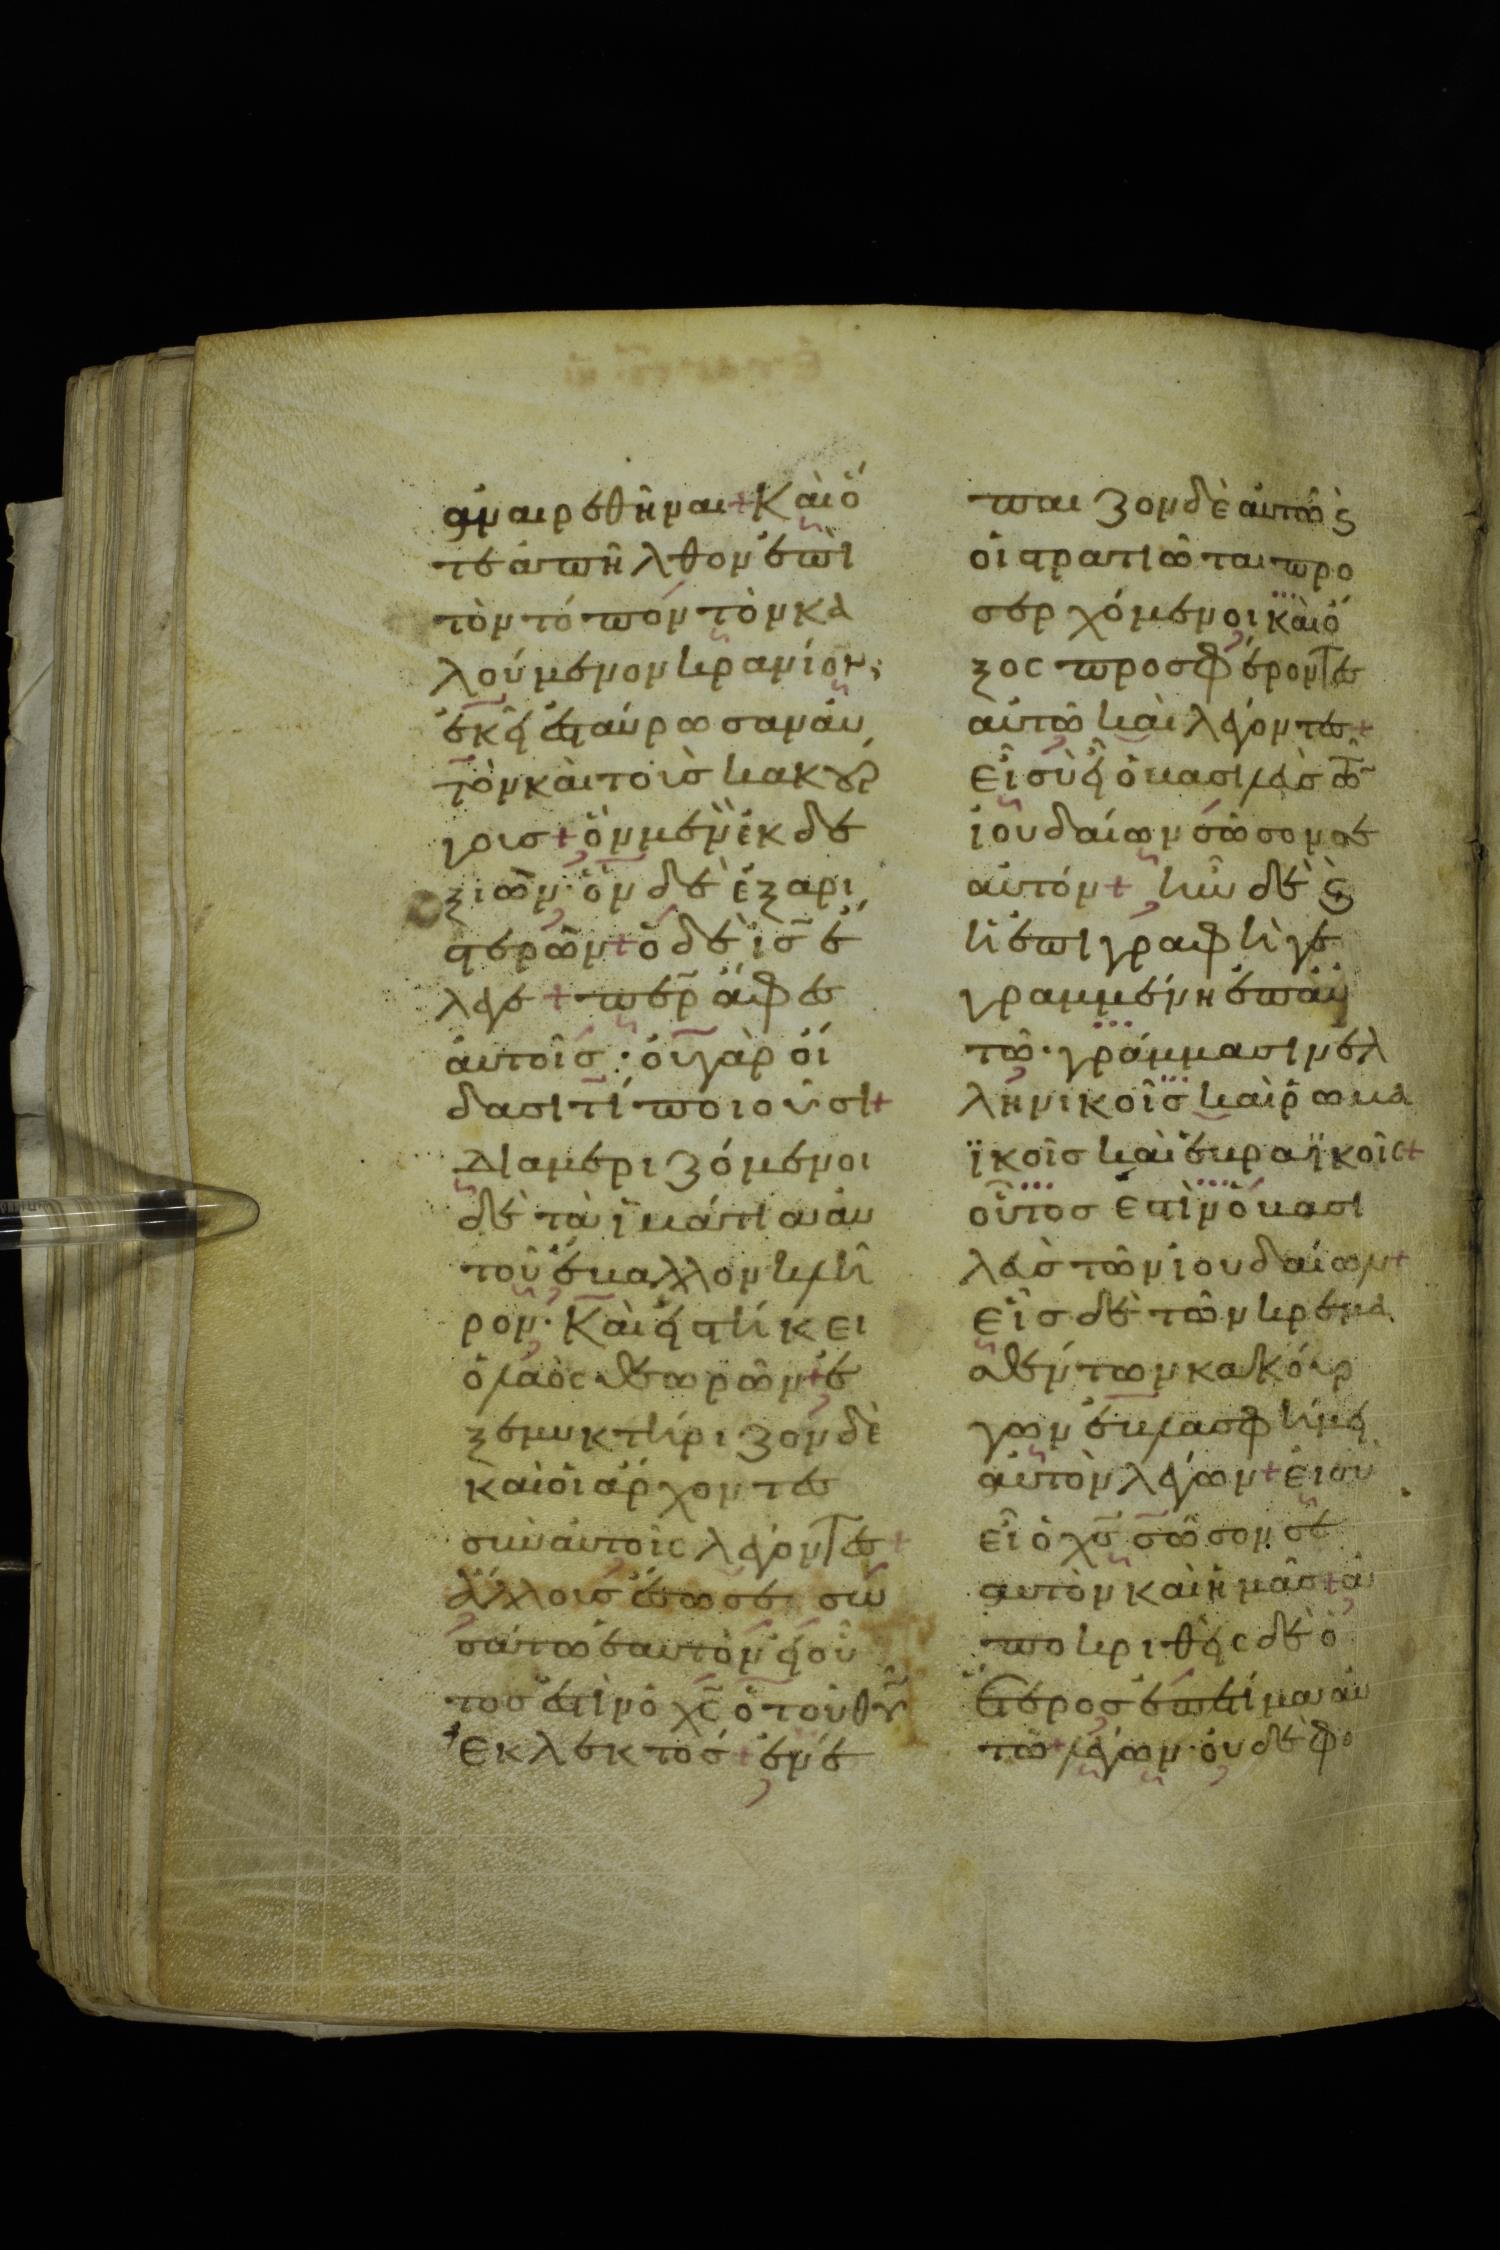 ἀναιρεθῆναι + Καὶ ὅ
τε ἀπῆλθον ἐπὶ
τὸν τόπον τὸν κα
λούμενον κρανίον,
ἐκεῖ ἐσταύρωσαν αὐ
τὸν καὶ τοὺς κακούρ
γους + ὃν μὲν ἐκ δε
ξιῶν· ὃν δὲ ἐξ ἀρι
στερῶν + ὁ δὲ ις̅ ἔ
λεγε + περ̅ ἄφες
αὐτοῖς· οὐ γὰρ οἴ
δασι τί ποιοῦσι +
Διαμεριζόμενοι
δὲ τὰ ἱμάτια αὐ
τοῦ ἔβαλλον κλῆ
ρον· Καὶ εἱστήκει
ὁ λαὸς θεωρῶν + ἐ
ξεμυκτήριζον δὲ
καὶ οἱ ἄρχοντες
σὺν αὐτοῖς λέγοντες +
ἄλλους ἔσωσε σω
σάτω ἑαυτὸν εἰ οὗ
τος ἐστὶν ὁ χς̅ ὁ τοῦ θυ̅
ἐκλεκτός + ἐνέ
παιζον δὲ αὐτῶ ϗ
οἱ στρατιῶται προ
σερχόμενοι καὶ ὄ
ξος προσφέροντες
αὐτῶ καὶ λέγοντες +
Εἰ σὺ εἶ ὁ βασιλεὺς τῶν
ἰουδαίων σῶσον σε
αὐτόν + ἦν δὲ ϗ
ἡ ἐπιγραφὴ γε
γραμμένη ἐπ' αὐ
τῶ· γράμμασιν ἑλ
ληνικοῖς καὶ ῥωμα
ϊκοῖς καὶ ἑβραϊκοῖς +
οὗτος ἐστὶν ὁ βασι
λεὺς τῶν ἰουδαίων +
Εἷς δὲ τῶν κρεμα
σθέντων κακούρ
γων ἐβλασφήμει
αὐτὸν λέγων + εἰ σὺ
εἶ ὁ χς̅ σῶσον σε
αυτὸν καὶ ἡμᾶς + ἀ
ποκριθεὶς δὲ ὁ
ἕτερος ἐπετίμα αὐ
τῶ + λέγων· οὐδὲ φο